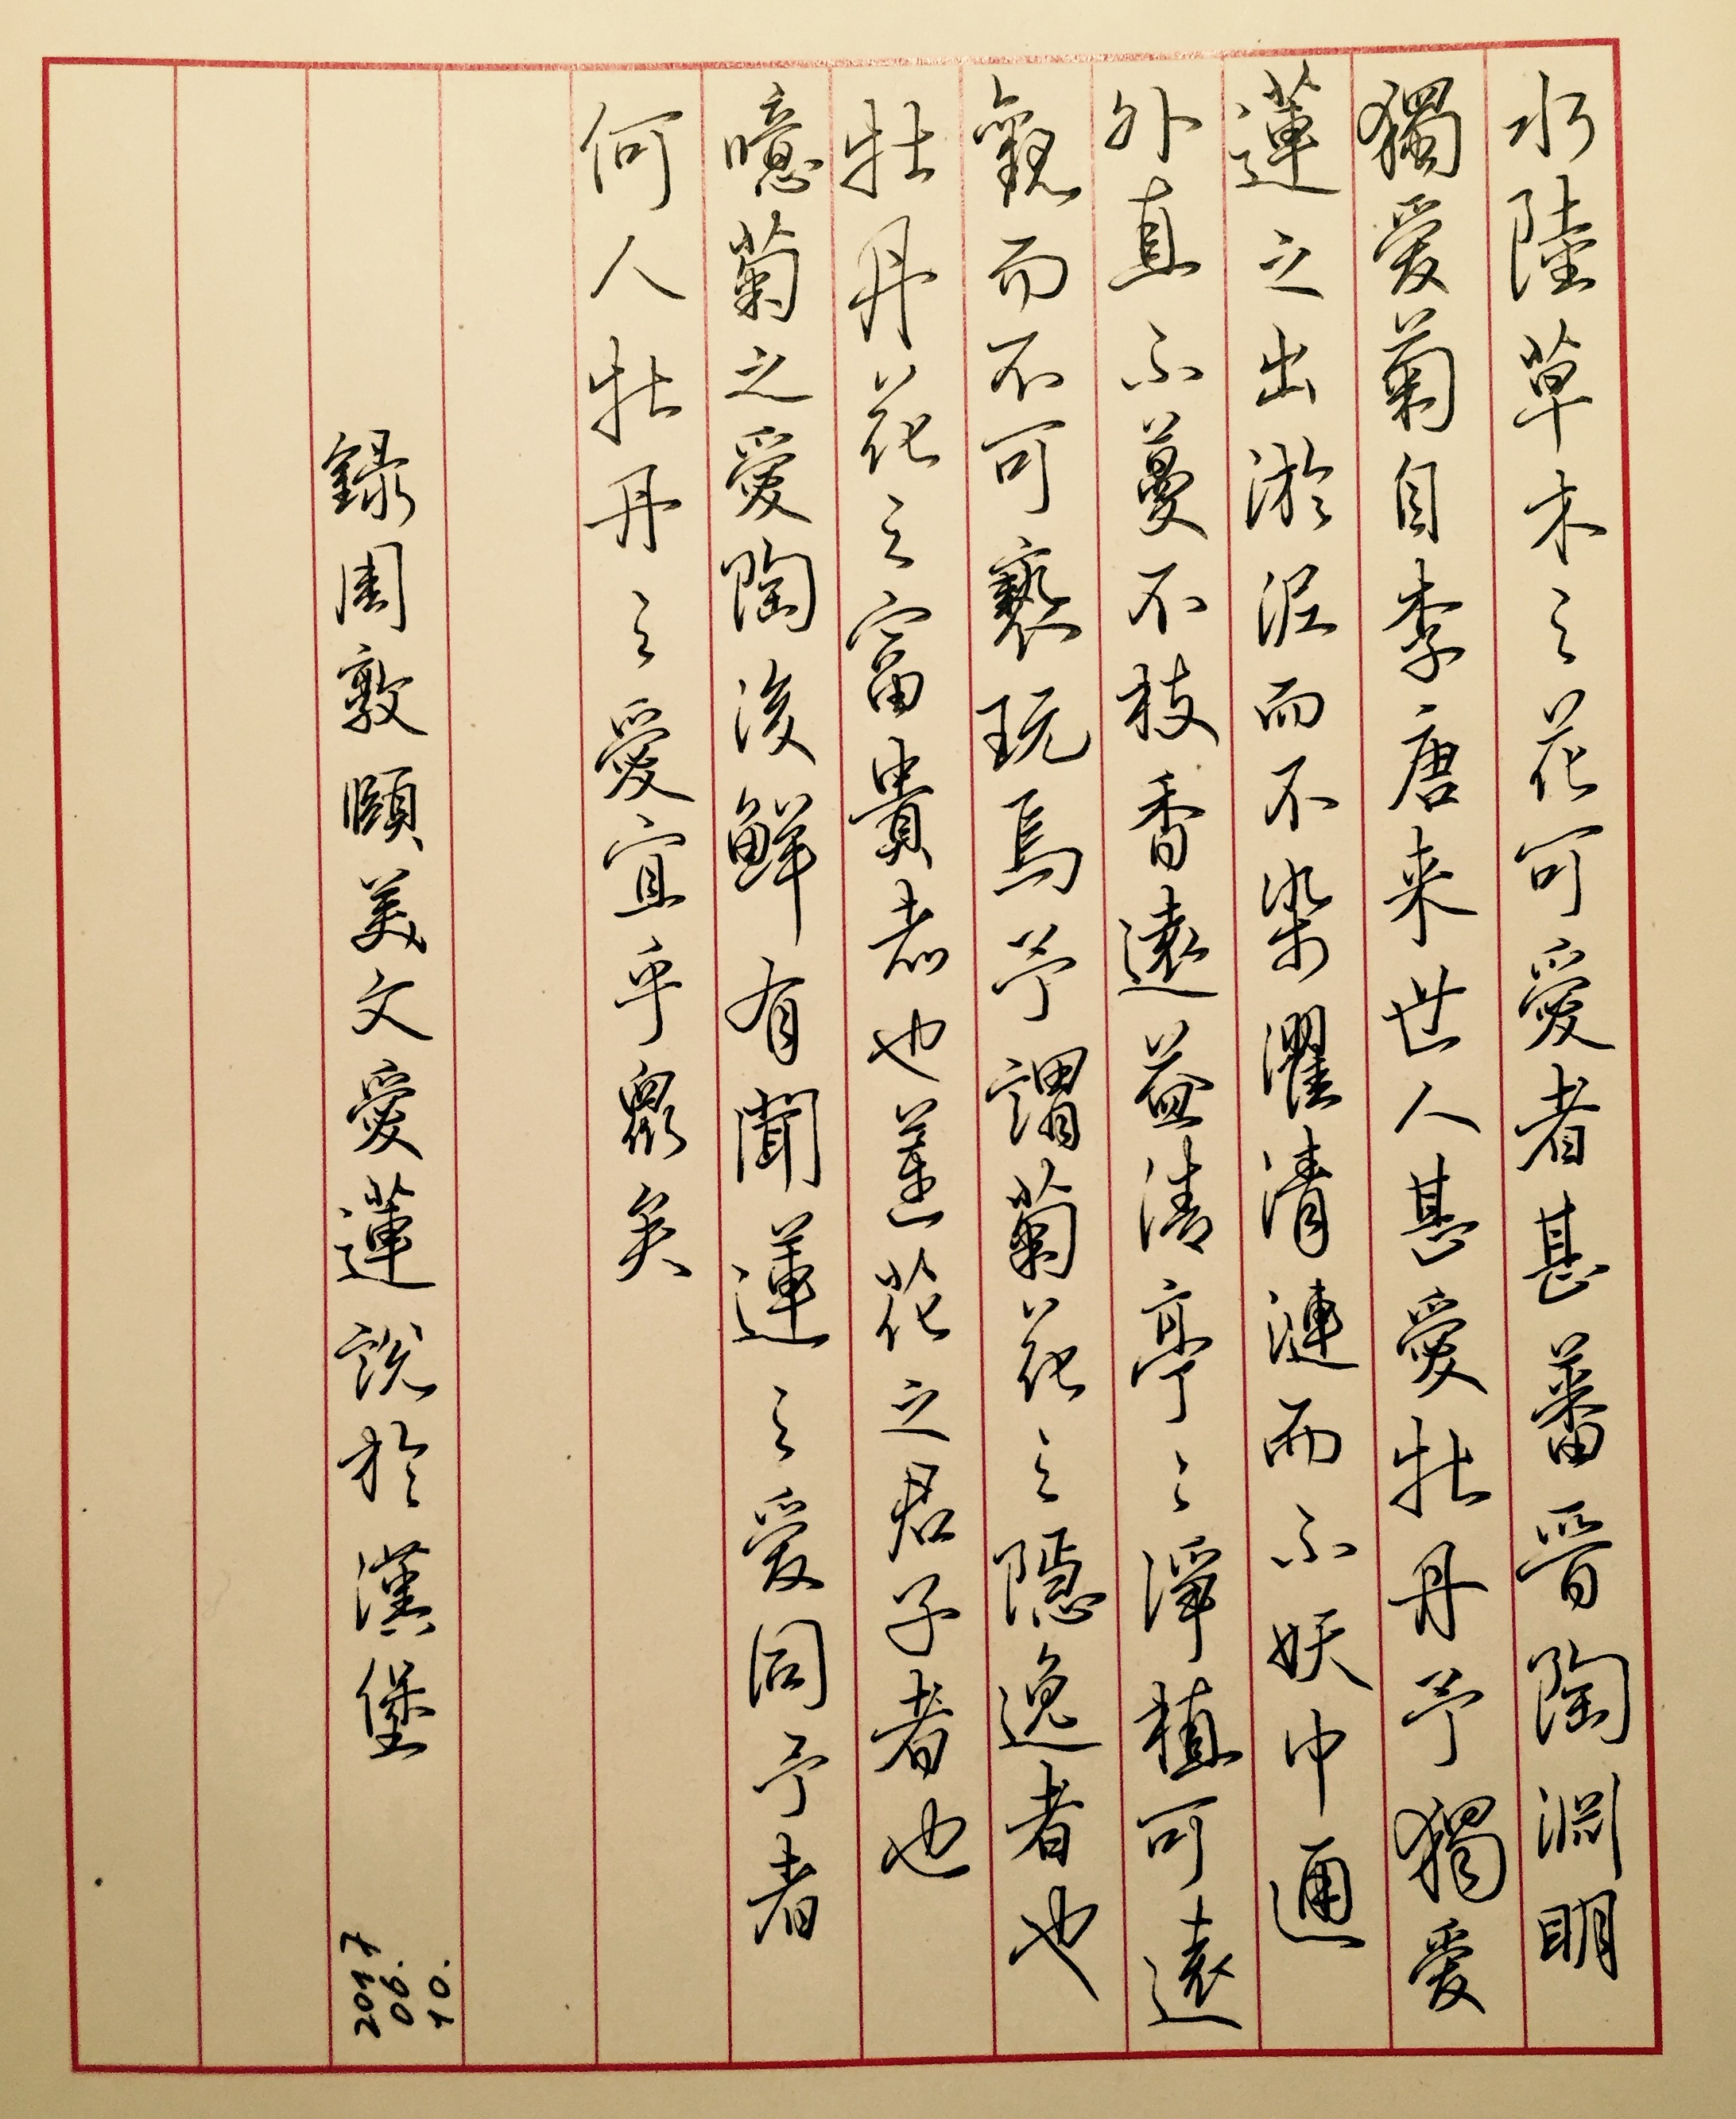 水陸草木之花可愛者甚蕃晉陶淵明
獨愛菊自李唐来世人甚愛牡丹予獨愛
蓮之出淤泥而不染濯清漣而不妖中通
外直不蔓不枝香遠益清亭〻淨植可遠
觀而不可褻玩焉予謂菊花之隱逸者也
牡丹花之富貴者也蓮花之君子者也
噫菊之愛陶後鮮有聞蓮之愛同予者
何人牡丹之愛宜乎眾矣
錄周敦頤美文愛蓮說於漢堡